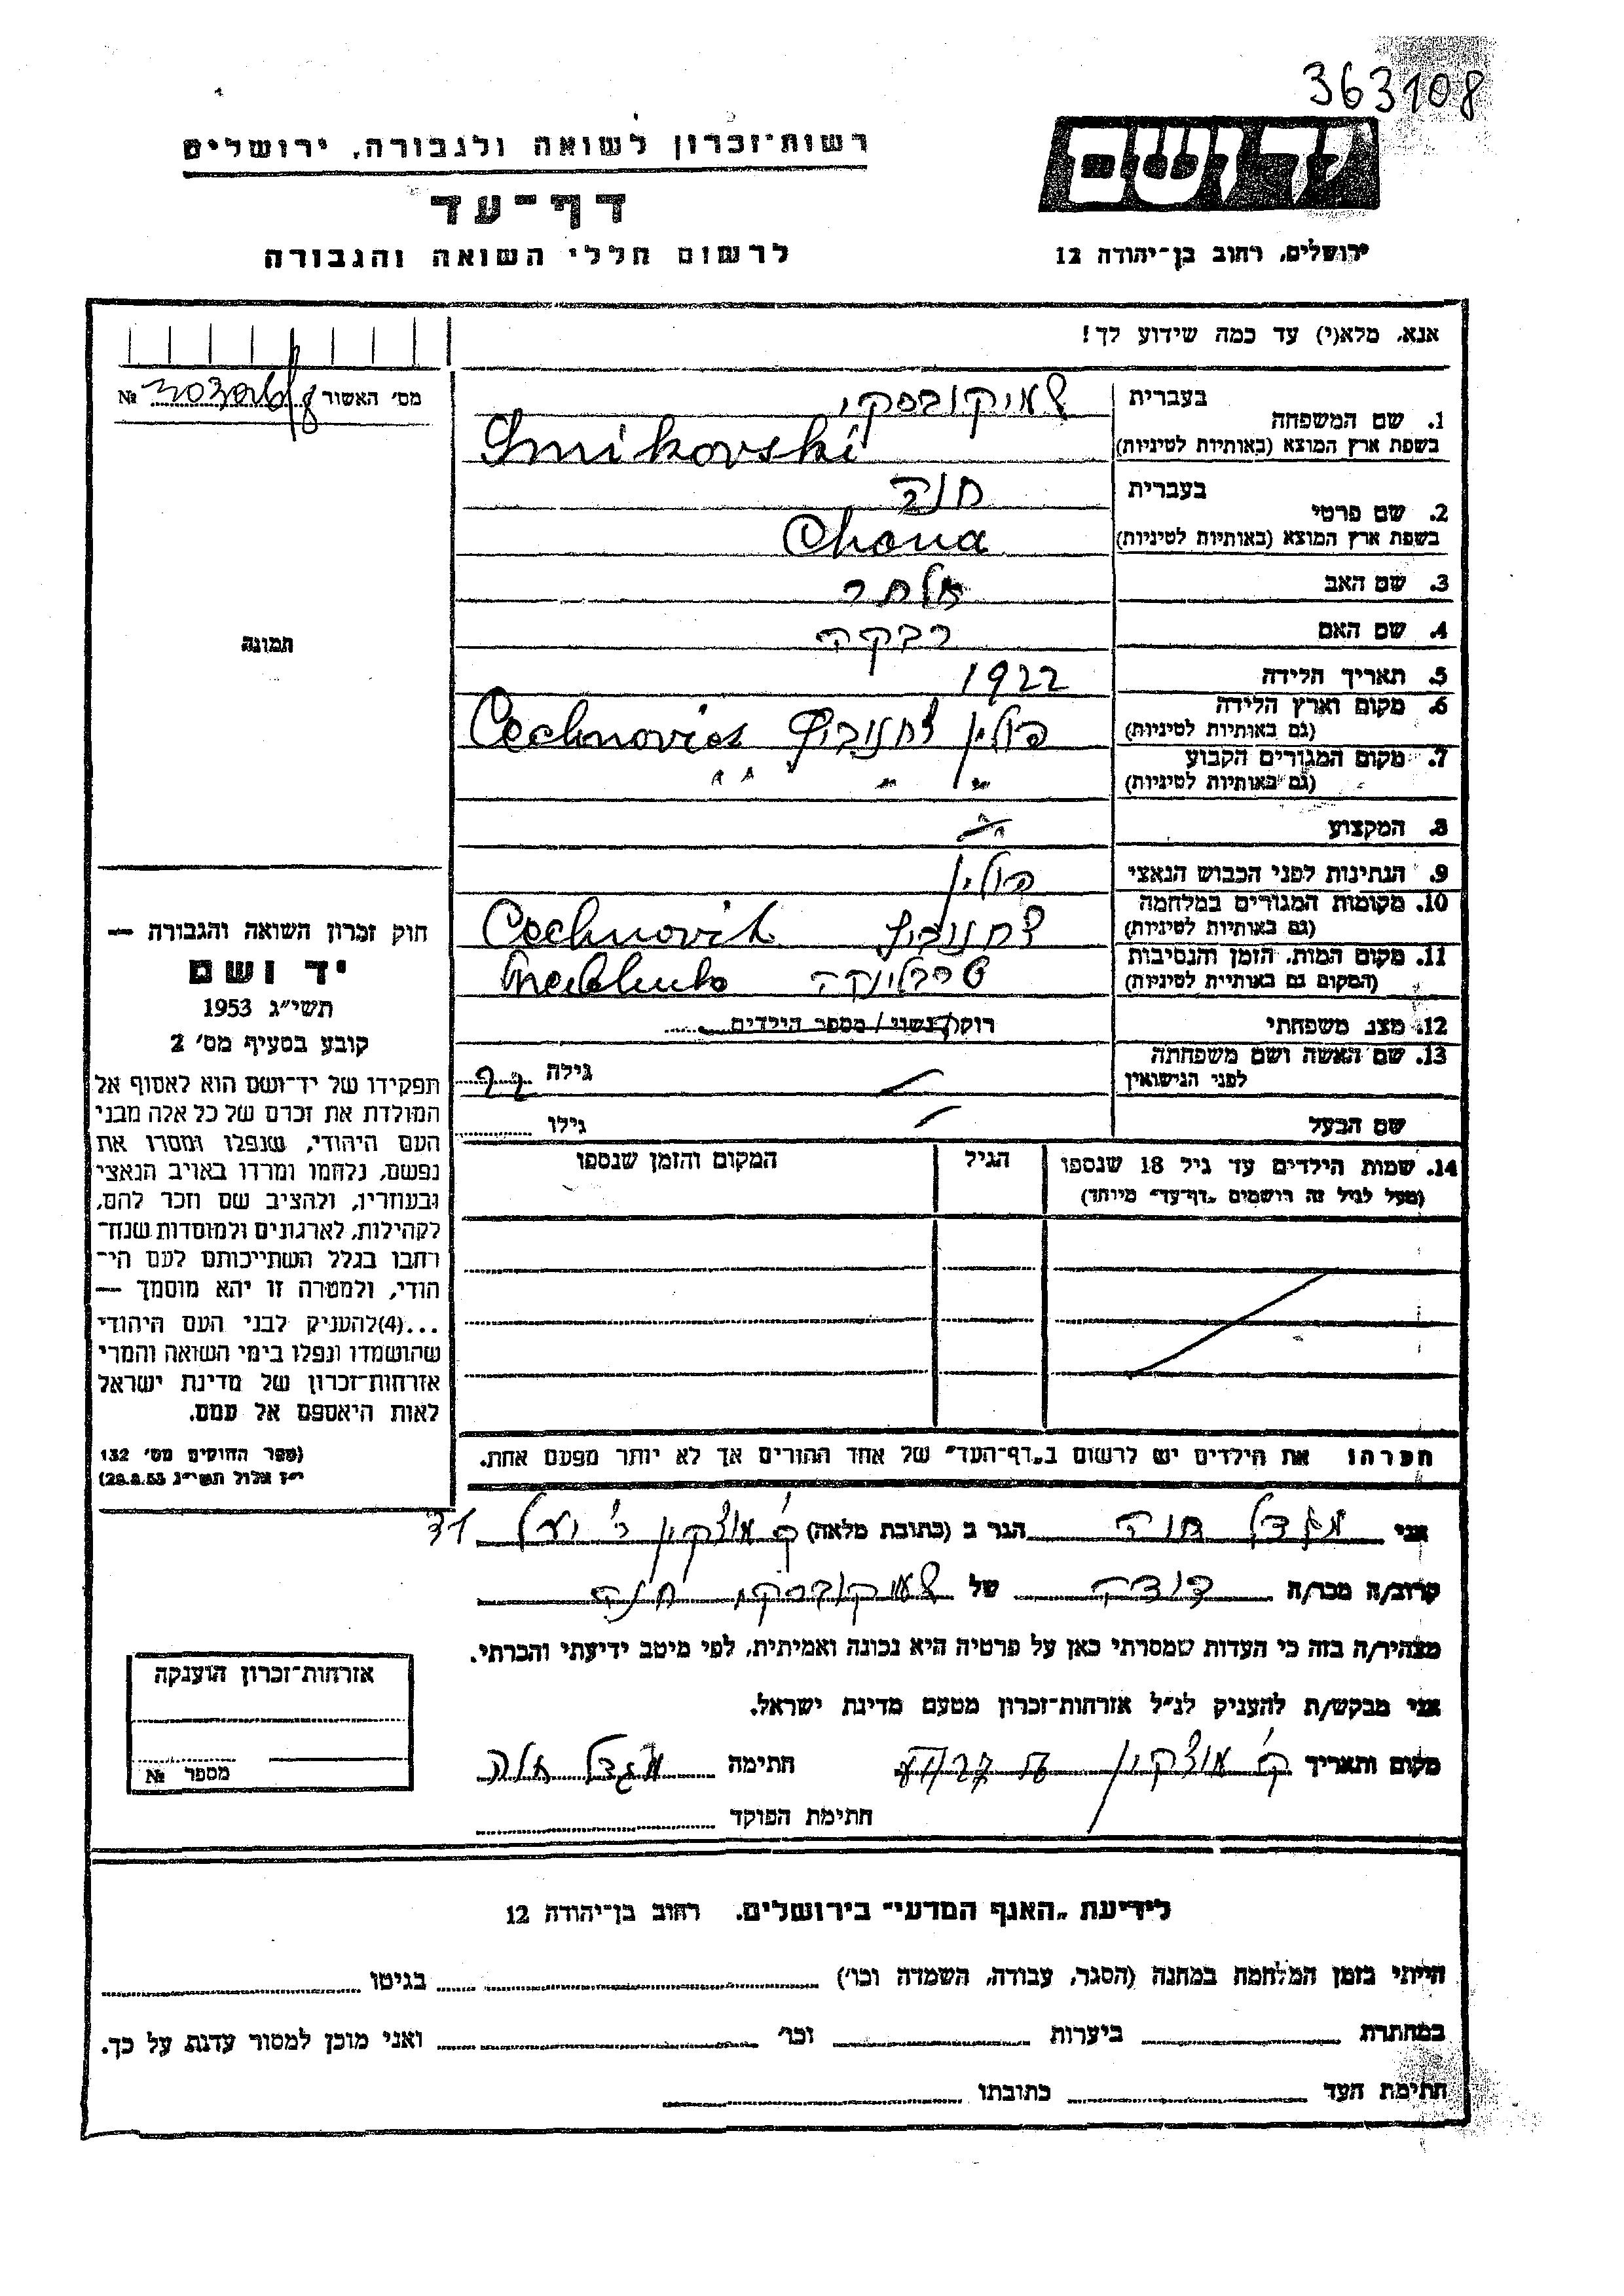 363108
רשות־זכרון לשואה ולגבורה, ירושלים
יד ושם
דף־עד
לרשום חללי השואה והגבורה
ירושלים, רחוב בן־יהודה 12
אנא, מלא(י) עד כמה שידוע לך!
מס׳ האשור №
1. שם המשפחה
בעברית שמיקובסקי
בשפת ארץ המוצא (באותיות לטיניות) Smikovski
2. שם פרטי
בעברית חנה
בשפת ארץ המוצא (באותיות לטיניות) Chana
3. שם האב
4. שם האם רבקה
5. תאריך הלידה 1922
6. מקום וארץ הלידה (גם באותיות לטיניות) פולין צחנוביץ Cechnovics
7. מקום המגורים הקבוע (גם באותיות לטיניות) " " " "
8. המקצוע
9. הנתינות לפני הכבוש הנאצי פולין
10. מקומות המגורים במלחמה (גם באותיות לטיניות) צחנוביץ Cechnovits
11. מקום המות, הזמן והנסיבות (המקום גם באותיית לטיניות) טרבלינקה
12. מצב משפחתי רוק/נשוי/ מספר הילדים
13. שם האשה ושם משפחתה לפני הנישואין גילה 22
שם הבעל גילו
14. שמות הילדים עד גיל 18 שנספו הגיל המקום והזמן שנספו
(מעל לגיל זה רושמים „דף־עד״ מיוחד)
תמונה
חוק זכרון השואה והגבורה —
יד ושם
תשי״ג 1953
קובע בסעיף מס׳ 2
תפקידו של יד־ושם הוא לאסוף אל
המולדת את זכרם של כל אלה מבני
העם היהודי, שנפלו ומסרו את
נפשם, נלחמו ומרדו באויב הנאצי
ובעוזריו, ולהציב שם וזכר להם,
לקהילות, לארגונים ולמוסדות שנח־
רחבו בגלל השתייכותם לעם הי־
הודי, ולמטרה זו יהא מוסמך —
...(4)להעניק לבני העם היהודי
שהושמדו ונפלו בימי השואה והמרי
אזרחות־זכרון של מדינת ישראל
לאות היאספם אל עמם.
(ספר החוקים מס׳ 132
י״ז אלול תשי״ג 28.8.53)
חפרהו את הילדים יש לרשום ב„דף־העד״ של אחד ההורים אך לא יותר מפעם אחת.
אני מגדל חוה הגר ב (כתובת מלאה) ק׳ מוצקין
קרוב/ה מכר/ה דודה של שמיקובסקי חנה
מצהיר/ה בזה כי העדות שמסרתי כאן על פרטיה היא נכונה ואמיתית, לפי מיטב ידיעתי והכרתי.
אני מבקש/ת להעניק לנ״ל אזרחות־זכרון מטעם מדינת ישראל.
מקום ותאריך ק׳ מוצקין חתימה מגדל חוה
חתימת הפוקד
אזרחות־זכרון הוענקה
מספר №
לידיעת „האגף המדעי״ בירושלים, רחוב בן־יהודה 12
הייתי בזמן המלחמה במחנה (הסגר, עבודה, השמדה וכו׳) בגיטו
במחתרת ביערות וכו׳ ואני מוכן למסור עדות על כך.
חתימת העד כתובתו